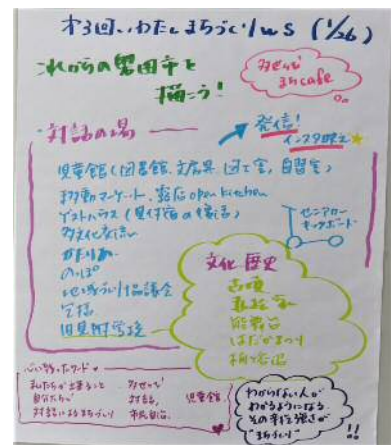 オ3回、いわたしまちづくりWS (1/26)
これからの磐田市を
描こう!
みせなび
まちcafe
対話の場
発信!
インスタ映え
児童館(図書館、文房具、図工室、自習室)
移動マーケット、露店open kitchen
ゲストハウス(見付宿の復活)
多文化交流
かたりあ
のっぽ
地域づくり協議会
交流
旧見附学校
センアカー
キックボード
文化 歴史
古墳
能舞台
はだかまつり
心に残ったワード
私たちが主きること
自分たち
対話によるまちづくり
みせなび
対話、
市民自治、
児童館、
わからない人が
わかるようになる
その手伝う強さが
まちづくり
!!